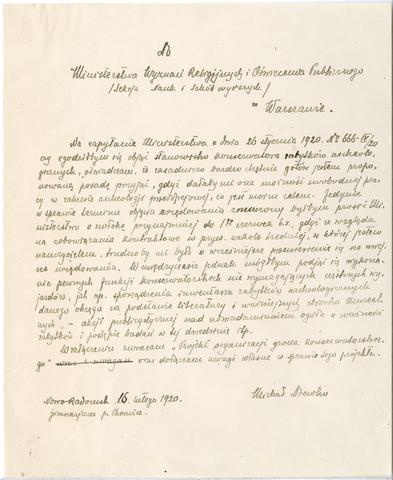 Do
Ministerstwa Wyznań Religijnych i Oświecenia Publicznego
/Sekcja Nauk i Szkół wyższych/
w Warszawie.
Na zapytanie Ministerstwa z dnia 26 stycznia 1920. No 666-IV/20
czy zgodziłbym się objąć stanowisko konserwatora zabytków archeolo-
gicznych, oświadczam, że zasadniczo bardzo chętnie gotów jestem propo-
nowaną posadę przyjąć, gdyż dałaby mi ona możność swobodnej pra-
cy w zakresie archeologii przedhistorycznej, co jest moim celem. Jedynie
w sprawie terminu objęcia urzędowania zmuszony byłbym prosić Mi-
nisterstwo o zwłokę przynajmniej do 1go czerwca b.r., gdyż ze względu
na zobowiązania kontraktowe w pryw. szkole średniej, w której jestem
nauczycielem, trudno by mi było o wcześniejsze przeniesienie się na miej-
sce urzędowania. W międzyczasie jednak mógłbym podjąć się wykona-
nia pewnych funkcji konserwatorskich nie wymagających częstych wy-
jazdów, jak np. sporządzenia inwentarza zabytków archeologicznych
danego okręgu na podstawie literatury i ważniejszych zbiorów muzeal-
nych, – akcji publicystycznej nad uświadamianiem ogółu o ważności
zabytków i postępie badań w tej dziedzinie itp.
W załączeniu zwracam „Projekt organizacji grona konserwatorskie-
go" oraz dołączam uwagi własne w sprawie tego projektu.
Nowo-Radomsk 16. lutego 1920.
gimnazjum p.
Michał Drewko